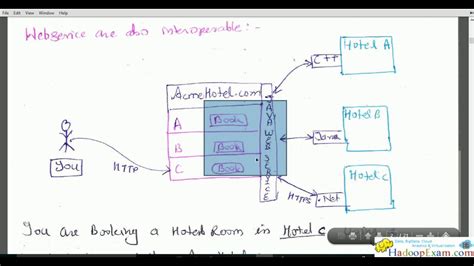 Webservice are also interoperable :-
Hotel A
C++
AcmeHotel.com
A Book
B Book
C Book
JAVA WEB SERVICE
Java
Hotel B
.Net
Hotel C
You
HTTP
HTTPS
You are Booking a Hotel Room in Hotel C
HadoopExam.com